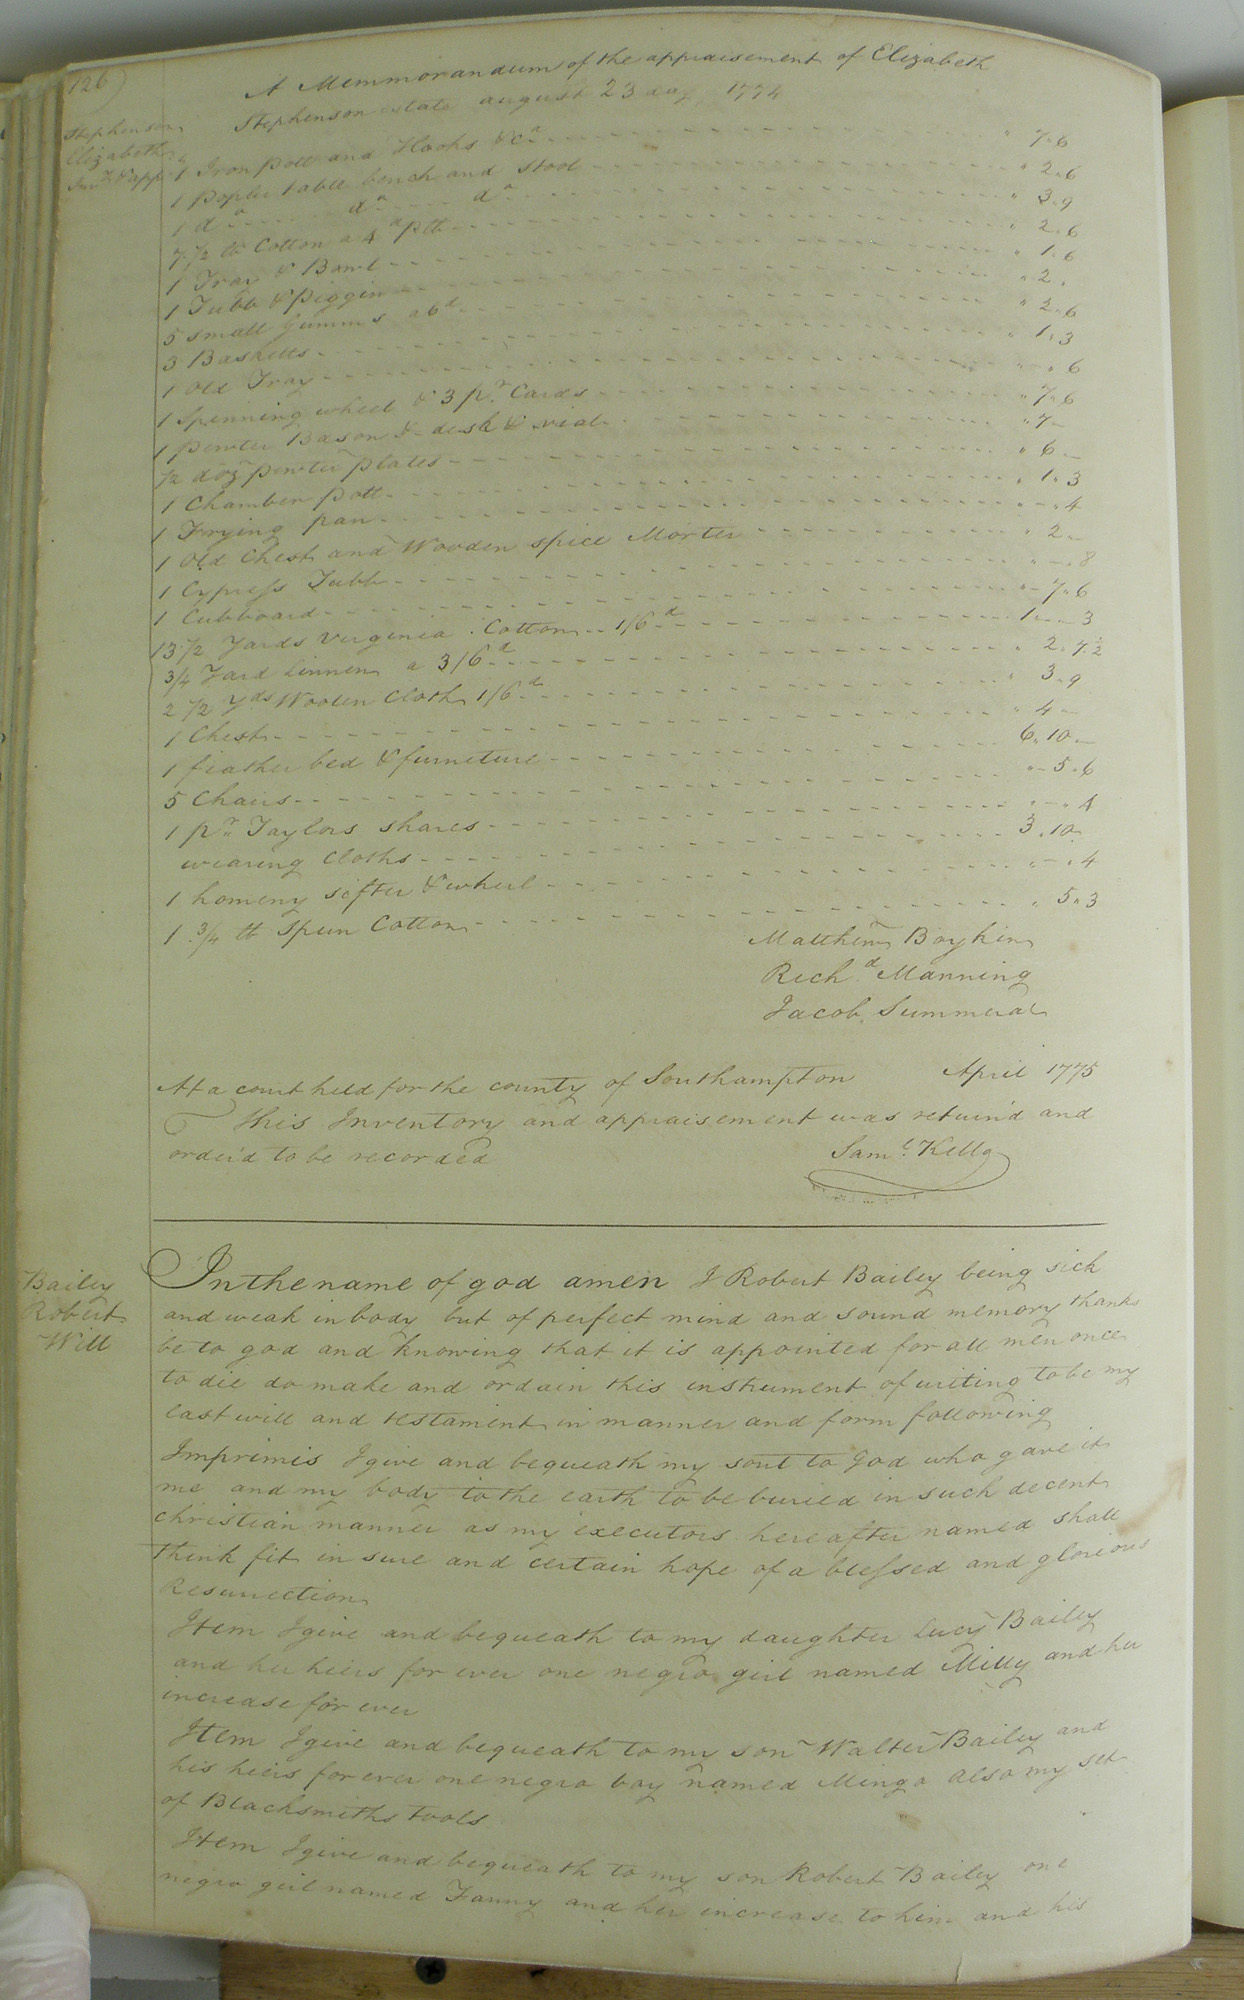 126)
A Memmorandum of the appraisement of Elizabeth
Stephenson estate august 23 day 1774
Stephenson
Elizabeth
Inv.y & app.
1 Iron pott and Hooks &c.a " 7.6
1 Popler table bench and stool " 2.6
1 do do do " 3.9
7 1/2 lb Cotton a 4d plb " 2.6
1 Tray & Bowl " 1.6
1 Tubb & piggin " 2 "
5 small Gumms a 6d " 2.6
3 Basketts " 1.3
1 Old Tray " " 6
1 Spinning wheel & 3 pr. Cards " 7.6
1 pewter Bason & desh & vial " 7 -
1/2 doz pewter plates " 6 -
1 Chamber pott " 1.3
1 Frying pan " - " 4
1 Old Chest and Wooden spice Morter " 2 -
1 Cypress Tubb " - " 8
1 Cubboard " - 7.6
13 1/2 Yards Virginia Cotton 1/6d 1 " - 3
3/4 Yard linnen a 3/6d " 2.7 1/2
2 1/2 Yds Woolen Cloth 1/6d " 3.9
1 Chest " 4 -
1 feather bed & furneture 6.10 -
5 Chairs " - 5.6
1 pr. Taylors shares " - " 4
wearing Cloths 3.10
1 homeny sifter & wheel " - " 4
1 3/4 lb Spun Cotton " 5.3
Matthew Boykin
Rich.d Manning
Jacob Summeral
At a court held for the county of Southampton April 1775
This Inventory and appraisement was return'd and
order'd to be recorded Sam.l Kello
Bailey
Robert
Will
In the name of god amen I Robert Bailey being sick
and weak in body but of perfect mind and sound memory thanks
be to god and knowing that it is appointed for all men once
to die do make and ordain this instrument of writing to be my
last will and testament in manner and form following
Imprimis I give and bequeath my soul to God who gave it
me and my body to the earth to be buried in such decent
christian manner as my executors hereafter named shall
think fit in sure and certain hope of a blessed and glorious
Resurrection
Item I give and bequeath to my daughter Lucy Bailey
and her heirs for ever one negro girl named Milly and her
increase for ever
Item I give and bequeath to my son Walter Bailey and
his heirs for ever one negro boy named Mingo also my set
of Blacksmiths tools
Item I give and bequeath to my son Robert Bailey one
negro girl named Fanny and her increase to him and his